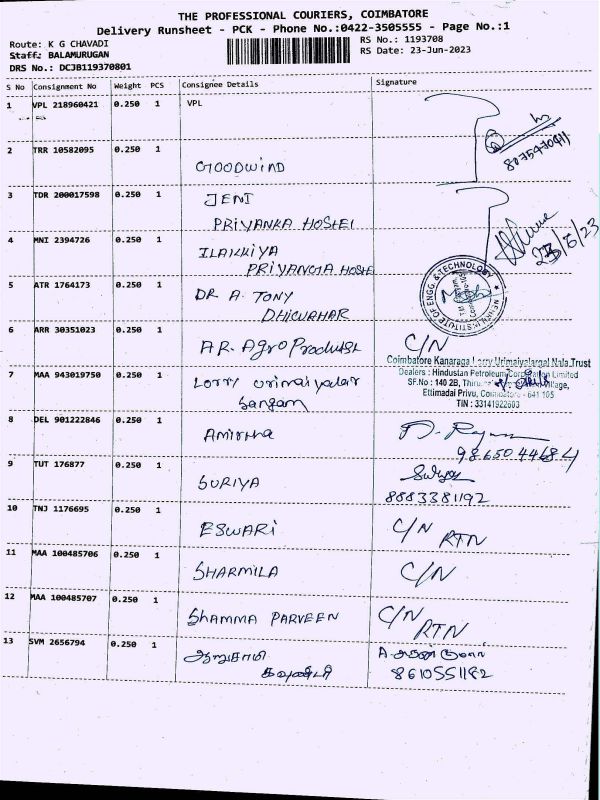 THE PROFESSIONAL COURIERS, COIMBATORE
Delivery Runsheet - PCK - Phone No.:0422-3505555 - Page No.:1
Route: K G CHAVADI
RS No.: 1193708
Staff: BALAMURUGAN
RS Date: 23-Jun-2023
DRS No.: DCJB119370801
S No Consignment No Weight PCS Consignee Details Signature
1 VPL 218960421 0.250 1 VPL
8075470911
2 TRR 10582095 0.250 1 GOODWIND
3 TDR 200017598 0.250 1 JENI
PRIYANKA HOSTEL
23/6/23
4 MNI 2394726 0.250 1 ILAKKIYA
PRIYANGA HOSTE
5 ATR 1764173 0.250 1 DR A. TONY
DHIWAHAR
INSTITUTE OF ENGG. & TECHNOLOGY
6 ARR 30351023 0.250 1 AR. Agro Products C/N
Coimbatore Kanaraga Lorry Urimaiyalargal Nala Trust
Dealers : Hindustan Petroleum Corporation Limited
SF.No : 140 2B, Village,
Ettimadai Privu, Coimbatore - 641 105
TIN : 33141922603
7 MAA 943019750 0.250 1 Lorry urimaiyalar
Sangam
8 DEL 901222846 0.250 1 Amirtha
9865044684
9 TUT 176877 0.250 1 SURIYA
8883381192
10 TNJ 1176695 0.250 1 ESWARI C/N
RTN
11 MAA 100485706 0.250 1 SHARMILA C/N
12 MAA 100485707 0.250 1 SHAMMA PARVEEN C/N
RTN
13 SVM 2656794 0.250 1 ஆறுசாமி
கவுண்டர்
8610551182